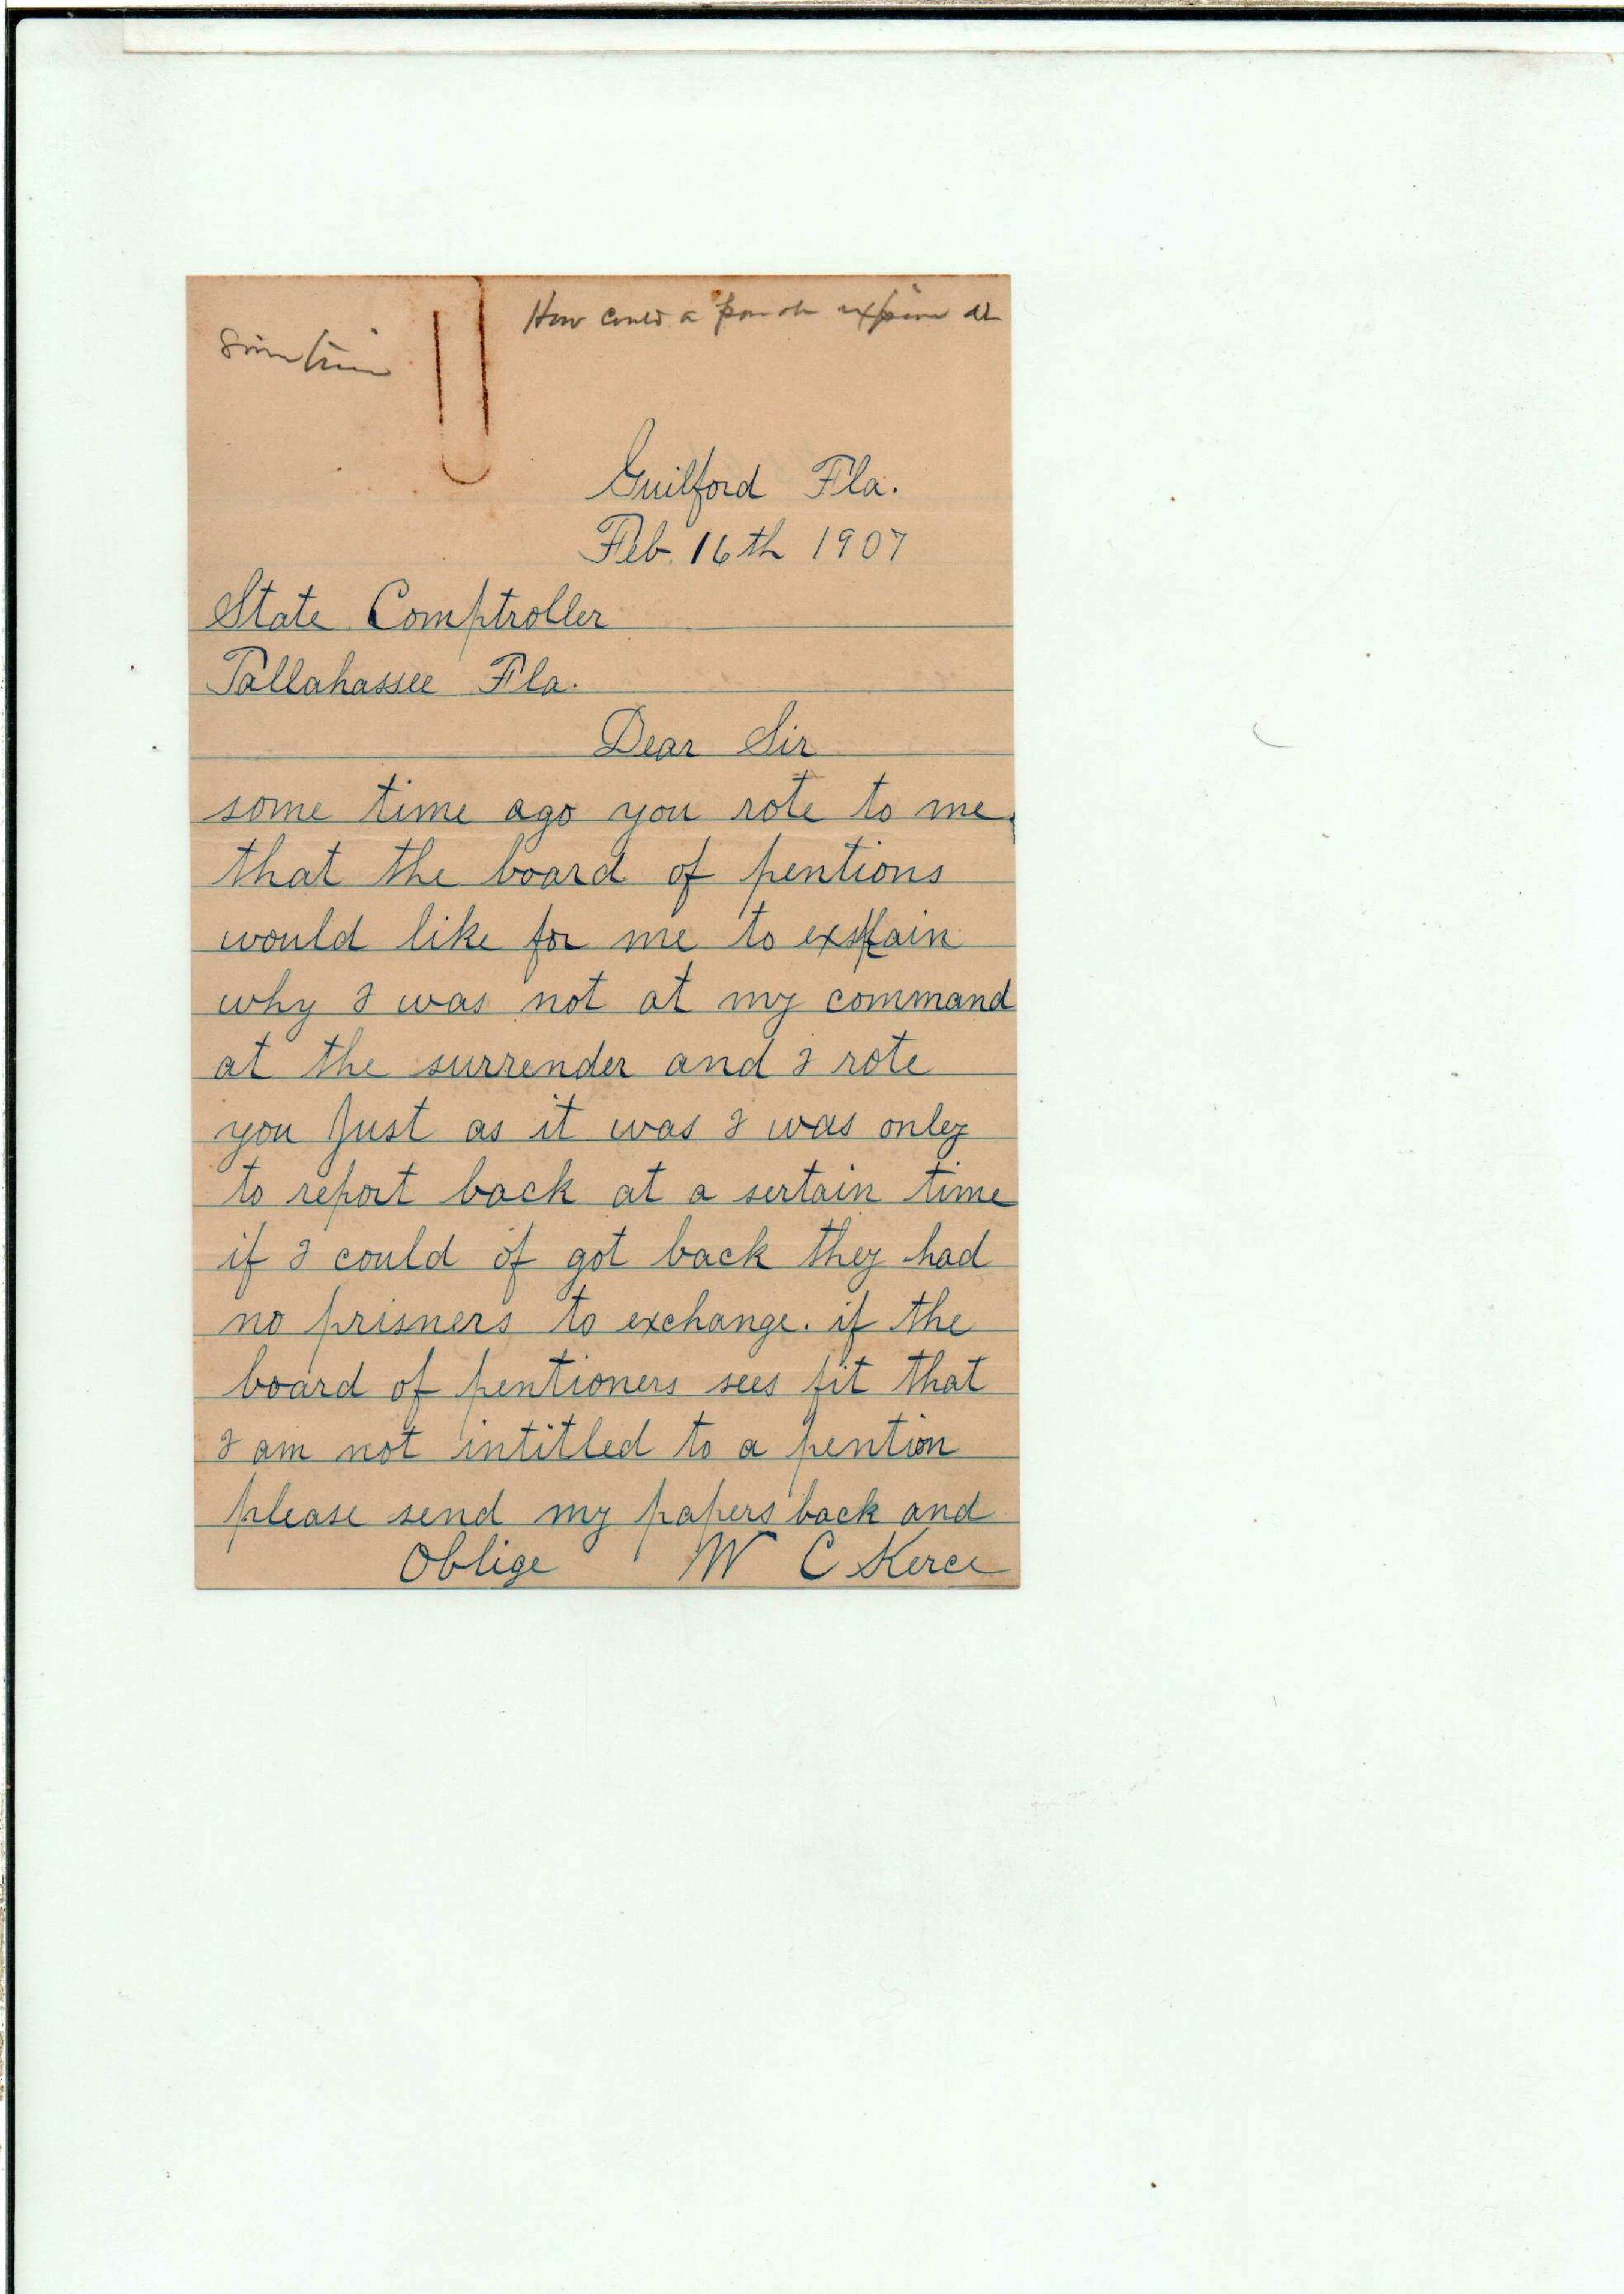 How could a parole expire at
some time
Guilford Fla.
Feb. 16th 1907
State Comptroller
Tallahassee Fla.
Dear Sir
some time ago you rote to me.
that the board of pentions
would like for me to explain
why I was not at my command
at the surrender and I rote
you Just as it was I was only
to report back at a sertain time
if I could of got back they had
no prisners to exchange. if the
board of pentioners sees fit that
I am not intitled to a pention
please send my papers back and
Oblige W C Kerce